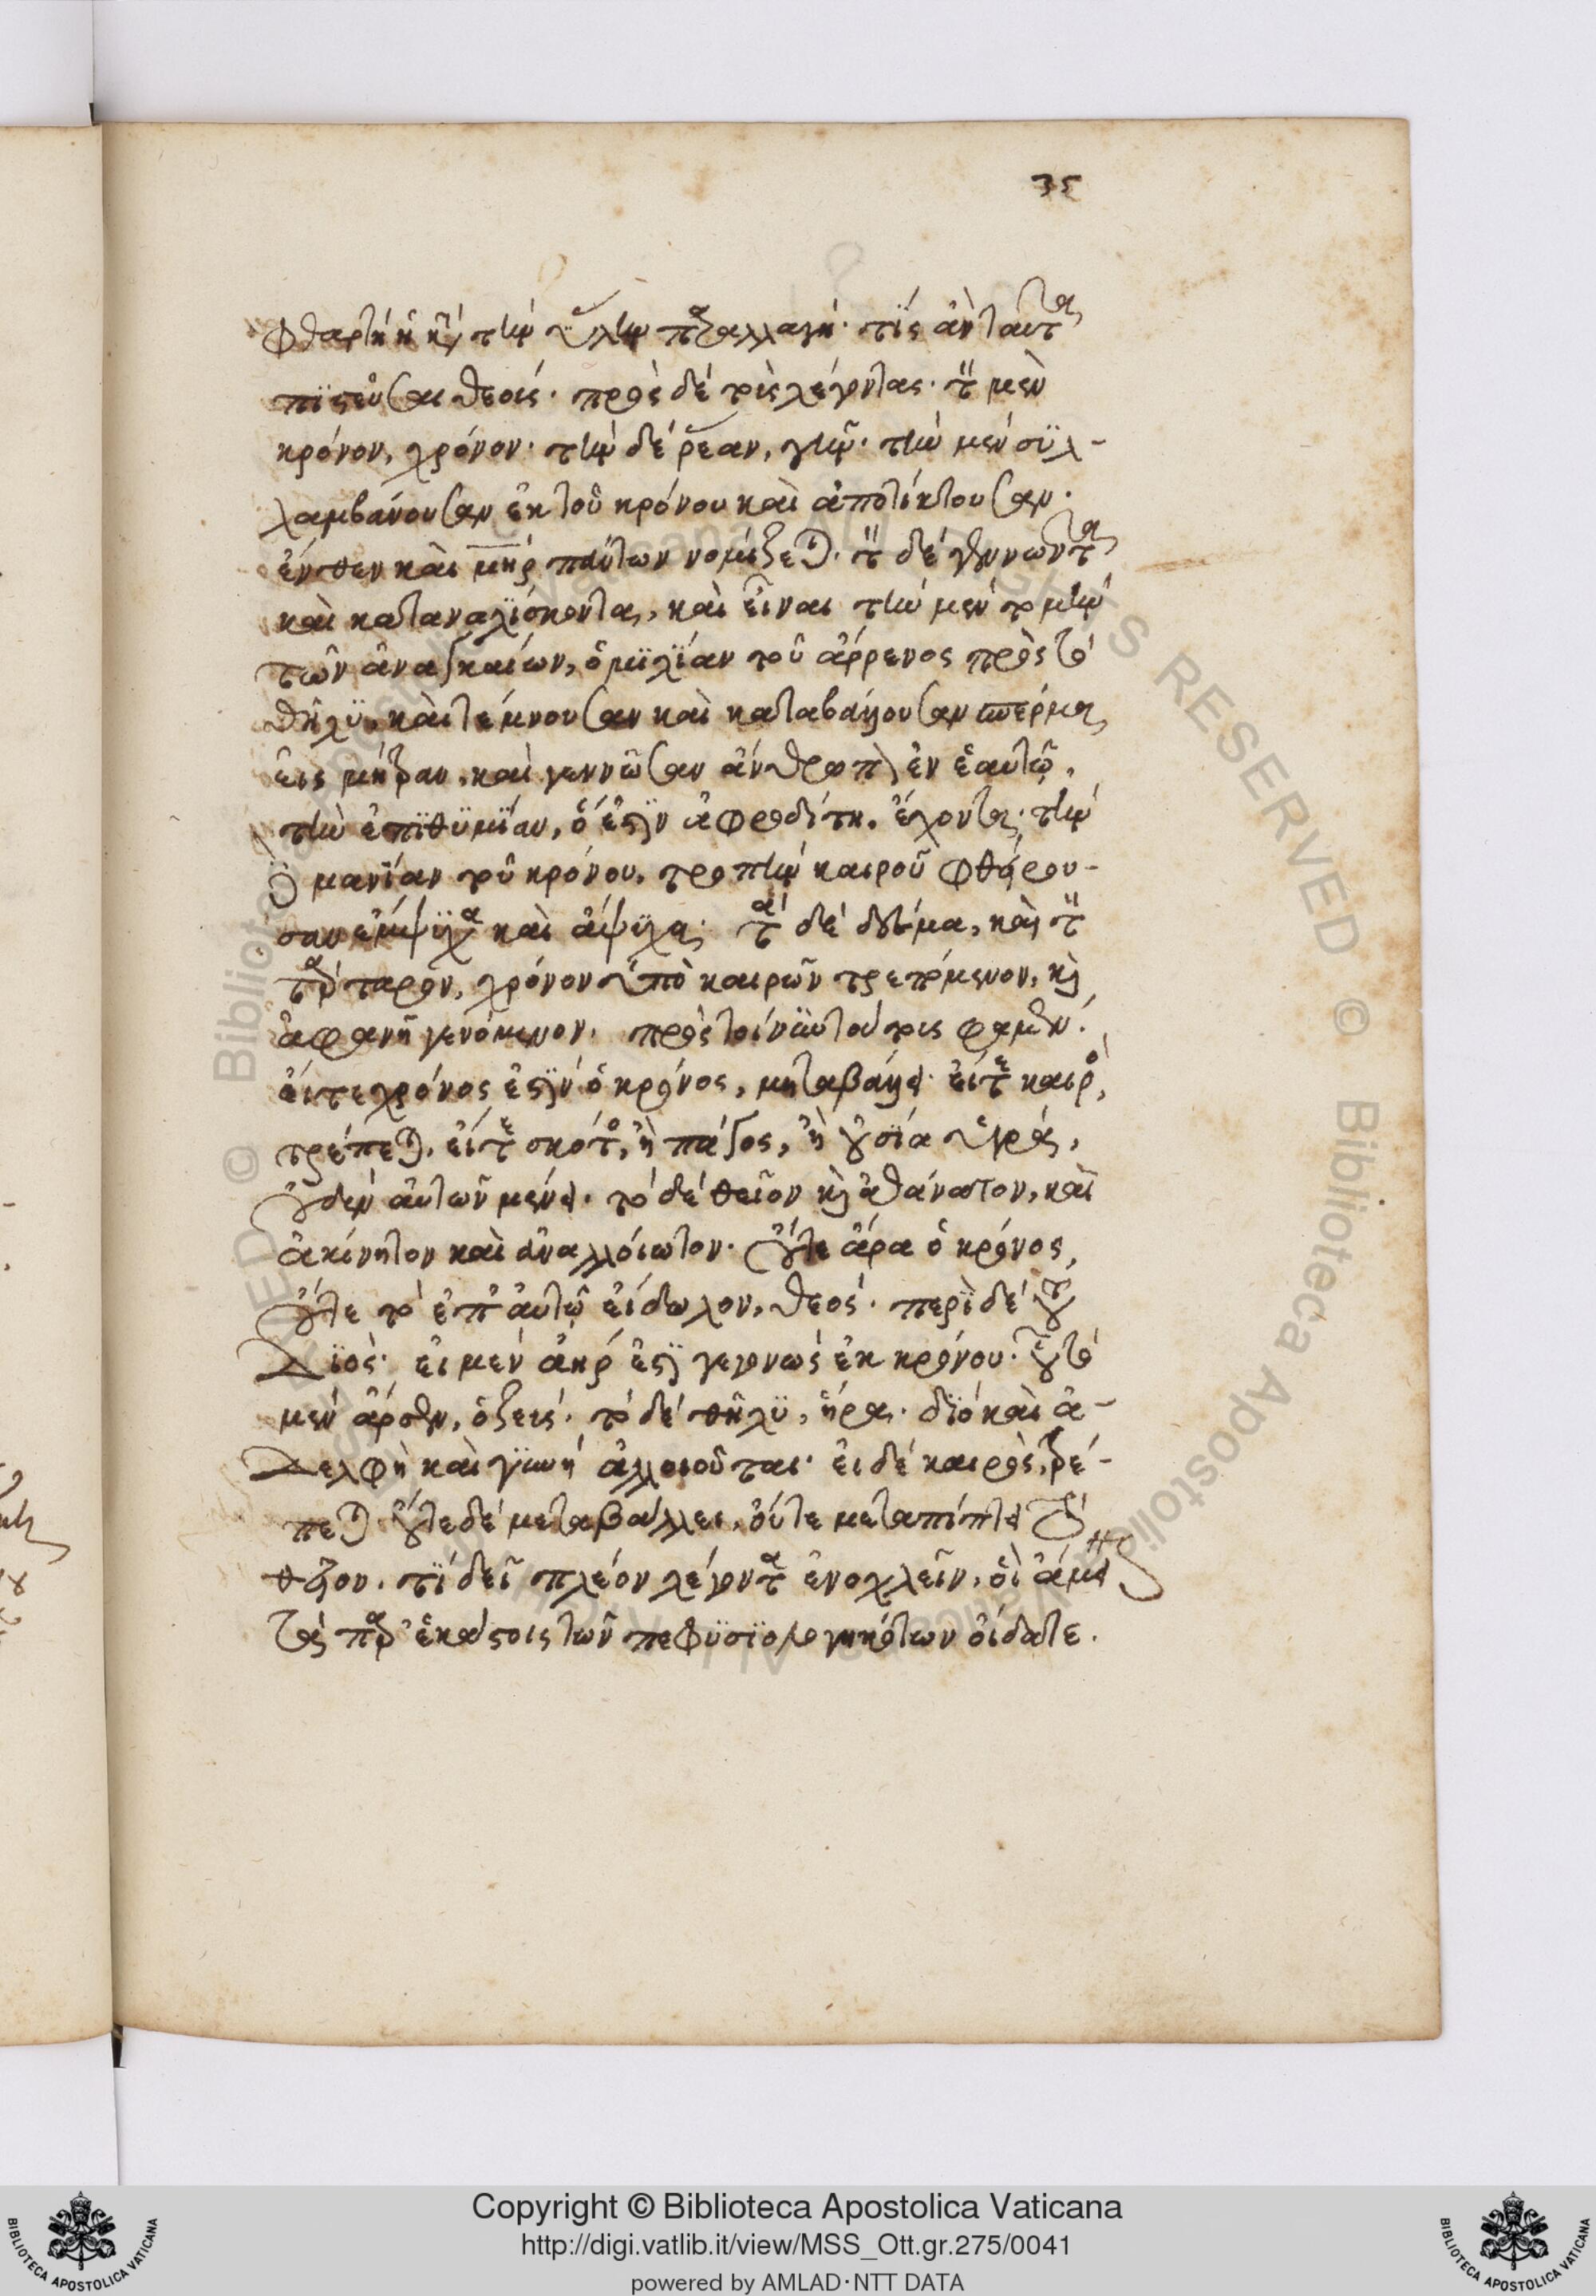 φθαρτὴ ἡ κατὰ τὴν ὕλην παραλλαγή· τίς ἂν ταῦτα
πϊστεῦσαι θεοίς· πρὸς δὲ τοὺς λέγοντας· τὸν μὲν
κρόνον, χρόνον· τὴν δὲ ῥέαν, γῆν· τὴν μὲν σϋλ-
λαμβάνουσαν ἐκ τοῦ κρόνου καὶ ἀποτίκτουσαν·
ἔνθεν καὶ μηρ πάντων νομίζεται· τὸν δὲ γεννῶντα
καὶ καταναλΐσκοντα, καὶ εἶναι τὴν μὲν τομὴν
τῶν ἀναγκαίων, ὁμϊλΐαν τοῦ ἄρρενος πρὸς τὸ
θῆλϋ, καὶ τέμνουσαν καὶ καταβάλλουσαν σπέρμα
εἰς μήτραν, καὶ γεννῶσαν ἄνθρωπον ἐν ἑαυτῷ,
τὴν ἐπϊθϋμΐαν, ὅ ἐστὶν ἀφροδίτη, ἔχοντα· τὴν
δὲ μανΐαν τοῦ κρόνου, τροπὴν καιροῦ φθείρου-
σαν ἔμψϋχα καὶ ἄψϋχα· τὰ δὲ δεσμὰ, καὶ τὸν
τάρταρον, χρόνον ὑπὸ καιρῶν τρεπόμενον, καὶ
ἀφανῆ γενόμενον. πρὸς τοίνϋν τούτοις φαμέν·
εἴτε χρόνος ἐστὶν ὁ κρόνος, μεταβάλλει· εἴτε καιρὸς,
τρέπεται. εἴτε σκότος, ἢ πάγος, ἢ οὐσΐα ὑγρά,
οὐδὲν αὐτῶν μένει· τὸ δὲ θεῖον καὶ ἀθάνατον, καὶ
ἀκίνητον καὶ ἀναλλοίωτον· οὔτε ἄρα ὁ κρόνος,
οὔτε τὸ ἐπ' αὐτῷ εἴδωλον, θεός· περὶ δὲ τοῦ
Δϊὸς· εἰ μὲν ἀὴρ ἐστὶ γεγονὼς ἐκ κρόνου· οὗ τὸ
μὲν ἄρσεν, ὁ ζεύς· τὸ δὲ θῆλϋ, ἥρα· δϊὸ καὶ ἀ-
Δελφὴ καὶ γϋνή ἀλλοιοῦται· εἰ δὲ καιρὸς, τρέ-
πεται· οὔτε δὲ μεταβάλλει, οὔτε μεταπίπτει τὸ
θεῖον. τί δεῖ πλέον λέγοντα ἐνοχλεῖν, οἳ ἄμεινον
τὰ παρ' ἑκάστοις τῶν πεφϋσϊολογηκότων οἴδατε.